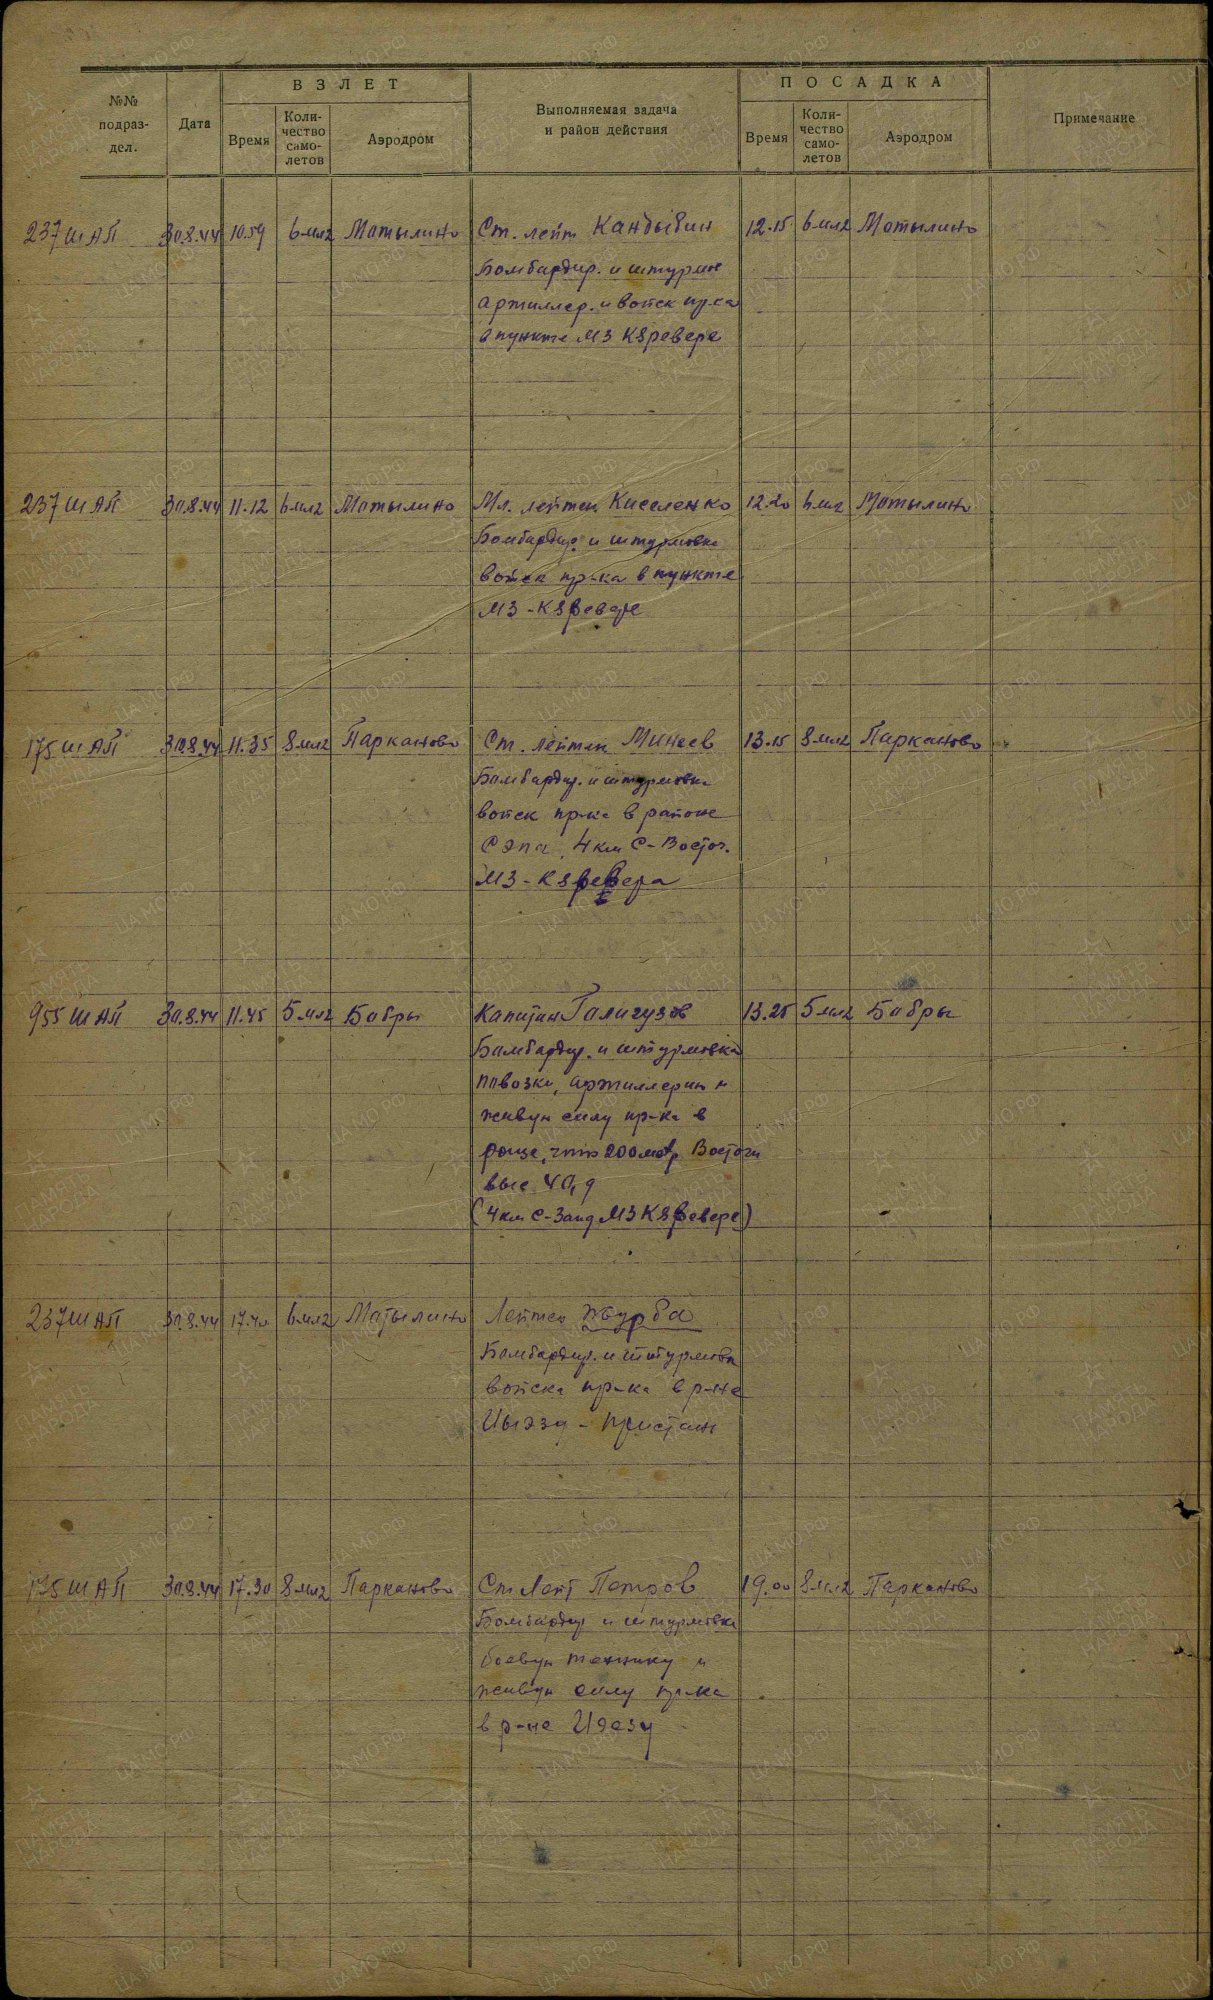 ВЗЛЕТ
ПОСАДКА
№№ подраз- дел.
Дата
Время
Коли- чество само- летов
Аэродром
Выполняемая задача и район действия
Время
Коли- чество само- летов
Аэродром
Примечание
237 ШАП 30.8.44 10.59 6 ил2 Мотылино Ст. лейт Кандыбин 12.15 6 ил2 Мотылино
Бомбардир. и штурм
артиллер. и войск пр-ка
в пункте МЗ КЯревере
237 ШАП 30.8.44 11.12 6 ил2 Мотылино Мл. лейтен Киселенко 12.20 6 ил2 Мотылино
Бомбардир. и штурмовка
войск пр-ка в пункте
МЗ-КЯревере
175 ШАП 30.8.44 11.35 8 ил2 Парканово Ст. лейтен Минеев 13.15 8 ил2 Парканово
Бомбардир. и штурмовка
войск пр-ка в районе
Сэпа, 4 км С-Восточ.
МЗ-КЯревера
955 ШАП 30.8.44 11.45 5 ил2 Бобры Капитан Галигузов 13.25 5 ил2 Бобры
Бомбардир. и штурмовка
повозки, артиллерии и
живую силу пр-ка в
роще, что 200 метр Восточн
выс 40,9
(4 км С-Запд МЗ КЯревере)
237 ШАП 30.8.44 17.40 6 ил2 Мотылино Лейтен Журба
Бомбардир. и штурмовка
войска пр-ка в р-не
- пристань
175 ШАП 30.8.44 17.30 8 ил2 Парканово Ст Лейт Петров 19.00 8 ил2 Парканово
Бомбардир и штурмовка
боевую технику и
живую силу пр-ка
в р-не